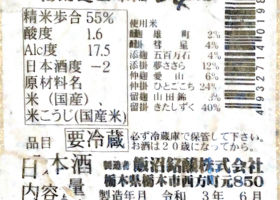 精米歩合 55%
酸度 1.6
Alc度 17.5
日本酒度 -2
原材料名
米(国産)、
米こうじ(国産米)
使用米
雄町 2%
彗星 4%
添掛 五百万石 4%
添掛 夢ささら 12%
仲掛 愛山 6%
仲掛 ひとごこち 24%
留掛 山田錦 3%
留掛 きたしずく 40%
4932711401098
品目
要冷蔵
必ず冷蔵庫で保管して下さい。
お酒は20歳になってから。
日本酒
製造者 飯沼銘醸株式会社
栃木県栃木市西方町元850
内容量
製造年月 令和 3年 6月